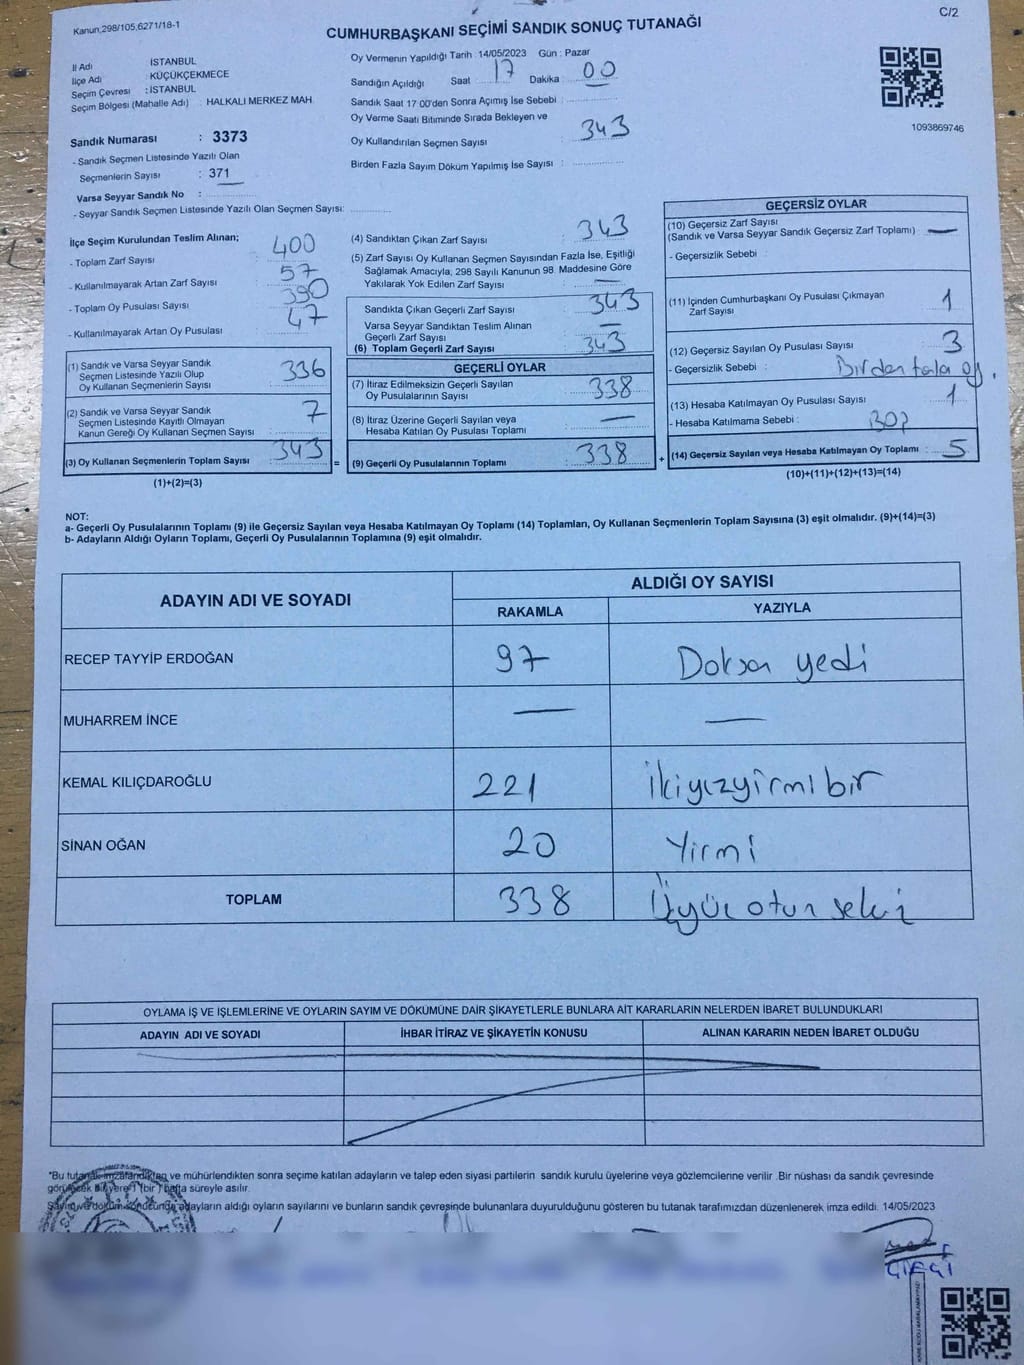 Kanun;298/105;6271/18-1
C/2
CUMHURBAŞKANI SEÇİMİ SANDIK SONUÇ TUTANAĞI
İl Adı İSTANBUL
İlçe Adı : KÜÇÜKÇEKMECE
Seçim Çevresi : İSTANBUL
Seçim Bölgesi (Mahalle Adı) : HALKALI MERKEZ MAH
Sandık Numarası : 3373
- Sandık Seçmen Listesinde Yazılı Olan
Seçmenlerin Sayısı : 371
Varsa Seyyar Sandık No :
- Seyyar Sandık Seçmen Listesinde Yazılı Olan Seçmen Sayısı:
Oy Vermenin Yapıldığı Tarih : 14/05/2023 Gün : Pazar
Sandığın Açıldığı Saat 17 Dakika : 00
Sandık Saat 17 00'den Sonra Açımış İse Sebebi :
Oy Verme Saati Bitiminde Sırada Bekleyen ve
Oy Kullandırılan Seçmen Sayısı : 343
Birden Fazla Sayım Döküm Yapılmış İse Sayısı :
1093869746
İlçe Seçim Kurulundan Teslim Alınan;
- Toplam Zarf Sayısı : 400
- Kullanılmayarak Artan Zarf Sayısı : 57
- Toplam Oy Pusulası Sayısı : 390
- Kullanılmayarak Artan Oy Pusulası : 47
(1) Sandık ve Varsa Seyyar Sandık
Seçmen Listesinde Yazılı Olup
Oy Kullanan Seçmenlerin Sayısı : 336
(2) Sandık ve Varsa Seyyar Sandık
Seçmen Listesinde Kayıtlı Olmayan
Kanun Gereği Oy Kullanan Seçmen Sayısı : 7
(3) Oy Kullanan Seçmenlerin Toplam Sayısı : 343
(1)+(2)=(3)
(4) Sandıktan Çıkan Zarf Sayısı : 343
(5) Zarf Sayısı Oy Kullanan Seçmen Sayısından Fazla İse, Eşitliği
Sağlamak Amacıyla, 298 Sayılı Kanunun 98. Maddesine Göre
Yakılarak Yok Edilen Zarf Sayısı : —
Sandıkta Çıkan Geçerli Zarf Sayısı : 343
Varsa Seyyar Sandıktan Teslim Alınan
Geçerli Zarf Sayısı : —
(6) Toplam Geçerli Zarf Sayısı : 343
=
GEÇERLİ OYLAR
(7) İtiraz Edilmeksizin Geçerli Sayılan
Oy Pusulalarının Sayısı : 338
(8) İtiraz Üzerine Geçerli Sayılan veya
Hesaba Katılan Oy Pusulası Toplamı : —
(9) Geçerli Oy Pusulalarının Toplamı : 338
+
GEÇERSİZ OYLAR
(10) Geçersiz Zarf Sayısı
(Sandık ve Varsa Seyyar Sandık Geçersiz Zarf Toplamı) : —
- Geçersizlik Sebebi :
(11) İçinden Cumhurbaşkanı Oy Pusulası Çıkmayan
Zarf Sayısı : 1
(12) Geçersiz Sayılan Oy Pusulası Sayısı : 3
- Geçersizlik Sebebi : Birden fazla oy.
(13) Hesaba Katılmayan Oy Pusulası Sayısı : 1
- Hesaba Katılmama Sebebi :
(14) Geçersiz Sayılan veya Hesaba Katılmayan Oy Toplamı : 5
(10)+(11)+(12)+(13)=(14)
NOT:
a- Geçerli Oy Pusulalarının Toplamı (9) ile Geçersiz Sayılan veya Hesaba Katılmayan Oy Toplamı (14) Toplamları, Oy Kullanan Seçmenlerin Toplam Sayısına (3) eşit olmalıdır. (9)+(14)=(3)
b- Adayların Aldığı Oyların Toplamı, Geçerli Oy Pusulalarının Toplamına (9) eşit olmalıdır.
ADAYIN ADI VE SOYADI
ALDIĞI OY SAYISI
RAKAMLA YAZIYLA
RECEP TAYYİP ERDOĞAN 97 Doksan yedi
MUHARREM İNCE — —
KEMAL KILIÇDAROĞLU 221 İkiyüzyirmibir
SİNAN OĞAN 20 Yirmi
TOPLAM 338 Üçyüz otuz sekiz
OYLAMA İŞ VE İŞLEMLERİNE VE OYLARIN SAYIM VE DÖKÜMÜNE DAİR ŞİKAYETLERLE BUNLARA AİT KARARLARIN NELERDEN İBARET BULUNDUKLARI
ADAYIN ADI VE SOYADI İHBAR İTİRAZ VE ŞİKAYETİN KONUSU ALINAN KARARIN NEDEN İBARET OLDUĞU
*Bu tutanak imzalandıktan ve mühürlendikten sonra seçime katılan adayların ve talep eden siyasi partilerin sandık kurulu üyelerine veya gözlemcilerine verilir .Bir nüshası da sandık çevresinde
görülecek bir yere 1 (bir ) hafta süreyle asılır.
Sayım ve döküm sonucunda adayların aldığı oyların sayılarını ve bunların sandık çevresinde bulunanlara duyurulduğunu gösteren bu tutanak tarafımızdan düzenlenerek imza edildi. 14/05/2023